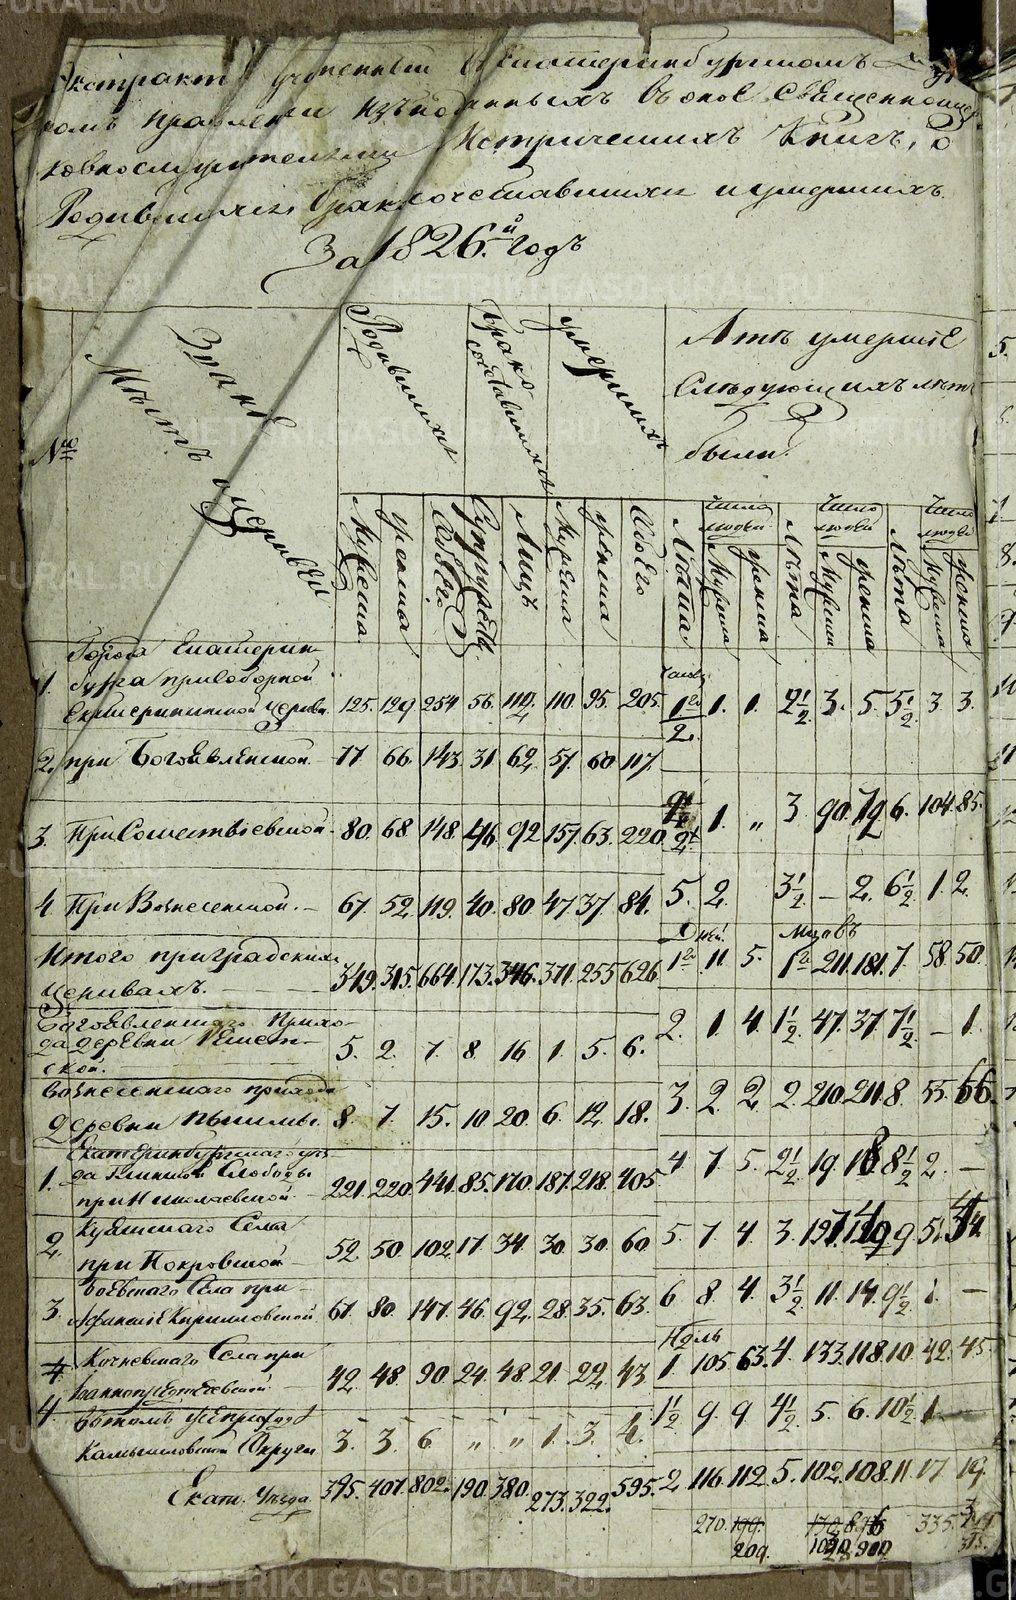 Экстрактъ учиненный въ Екатеринбургскомъ
комъ правлении изъ поданныхъ въ оное Священноцер
ковнослужителями Метрическихъ Книгъ, о
Родившихся, бракосочетавшихся и умершихъ
За 1826.й годъ
№
Званiе
Мѣстъ и Церквей
Родившихся
Брако
сочетавшихся
умершихъ
Лѣтъ умершiе
Слѣдующихъ лѣтъ
были.
Мужеска
женска
Обоего
Супружествъ
Лицъ
Мужеска
женска
Обоего
Лѣта
Число
людей
Мужеска
женска
Лѣта
Число
людей
Мужеска
женска
Лѣта
Число
людей
Мужеска
женска
1. Города Екатерин
бурга при Соборной
Екатерининской церкви 125. 129 254 56. 112. 110. 95. 205.
Часовъ
12/2. 1. 1. 2½ 3. 5. 5½ 3 3.
2. при Богоявленской 77 66. 143. 31 62. 57. 60 117.
3. При Сошествiевской 80. 68. 148. 46. 92 157. 63. 220
1. „ 3. 90. 79. 6. 104. 85.
4 При Вознесенской. 67. 52. 119. 40. 80. 47. 37. 84.
5. 2. 3½ – 2. 6½ 1. 2.
Итого при градскихъ
церквахъ. 349. 315. 664. 173. 346. 371. 255 626
Дней.
Мцовъ
1. 11. 5. 1. 211. 181. 7. 58. 50.
Богоявленскаго Прихо
да деревни Решет
ской. 5. 2. 7. 8. 16 1. 5. 6.
2. 1. 4. 1½ 47. 37. 7½ – 1.
Вознесенскаго прихода
деревни Пышмы. 8. 7. 15. 10. 20. 6. 12. 18.
3. 2. 2. 2. 210. 211. 8. 55. 66.
1. Екатеринбургскаго уѣз
да Слободы
при Николаевской 221. 220. 441. 85. 170. 187. 218. 405.
4 7. 5. 2½ 19. 8½ 2. –
2. Куяшскаго Села
при Покровской 52. 50. 102. 17. 34. 30. 30. 60
5. 7. 4. 3. 9. 51.
3. Боевскаго Села при
Афанасiе Кирилловской 67. 80. 147. 46. 92. 28. 35. 63.
6 8. 4. 3½ 11. 14. 9½ 1. –
4. Кочневскаго Села при
Iоанно предтечевской 42. 48. 90. 24. 48. 21. 22. 43
Ндль
1. 105. 63. 4. 133. 118. 10. 42. 45.
4. Въ томъ же приходѣ
Камышловской Округи 3. 3. 6 „ „ 1. 3. 4.
1½ 9. 9. 4½ 5. 6. 10½ 1.
Екат. Уѣзда 395. 407. 802. 190. 380. 273. 322. 595.
2. 116. 112. 5. 102. 108. 11. 17 19.
270. 199. 335.
209. 900.
METRIKI.GASO-URAL.RU